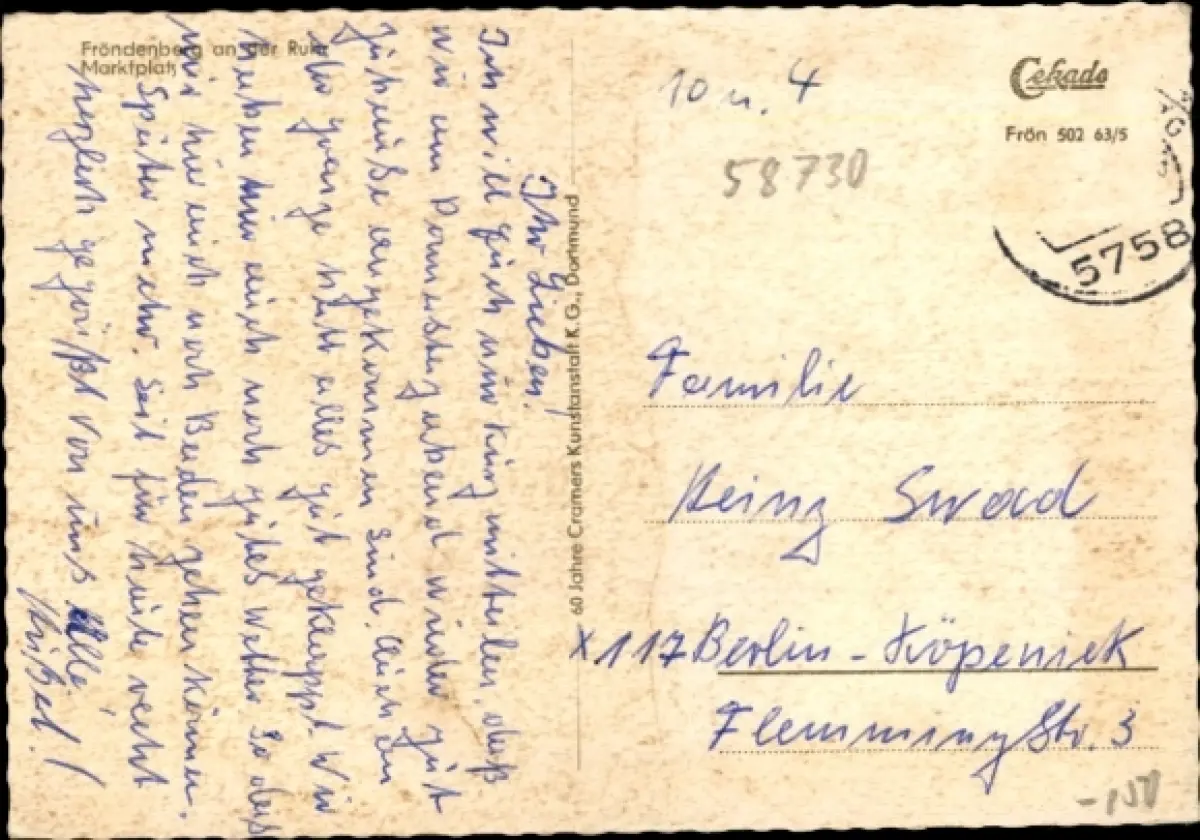 Fröndenberg an der Ruhr
Marktplatz
Ihr Lieben!
Ich will Euch nur kurz mitteilen, daß
wir am Donnerstag abend wieder gut
zu Hause angekommen sind. Auch
hat alles gut geklappt. Wir
haben hier auch noch gutes Wetter so daß
wir hier auch noch Baden gehen können.
Später mehr. Seit für heute recht
herzlich gegrüßt von uns Alle
60 Jahre Cramers Kunstanstalt K.G., Dortmund
10 u. 4
58730
Cekade
Frön 502 63/5
5758
Familie
Heinz Swad
X 117 Berlin - Köpenick
Flemming Str. 3